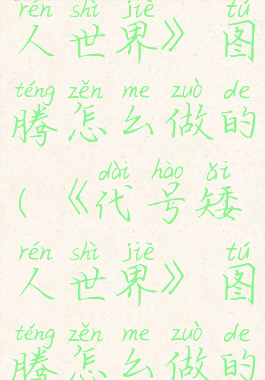 rén shì jiè tú
人世界》 图
téng zěn me zuò de
腾怎么做的
dài hào ǎi
(《代号矮
rén shì jiè tú
人世界》 图
téng zěn me zuò de
腾怎么做的